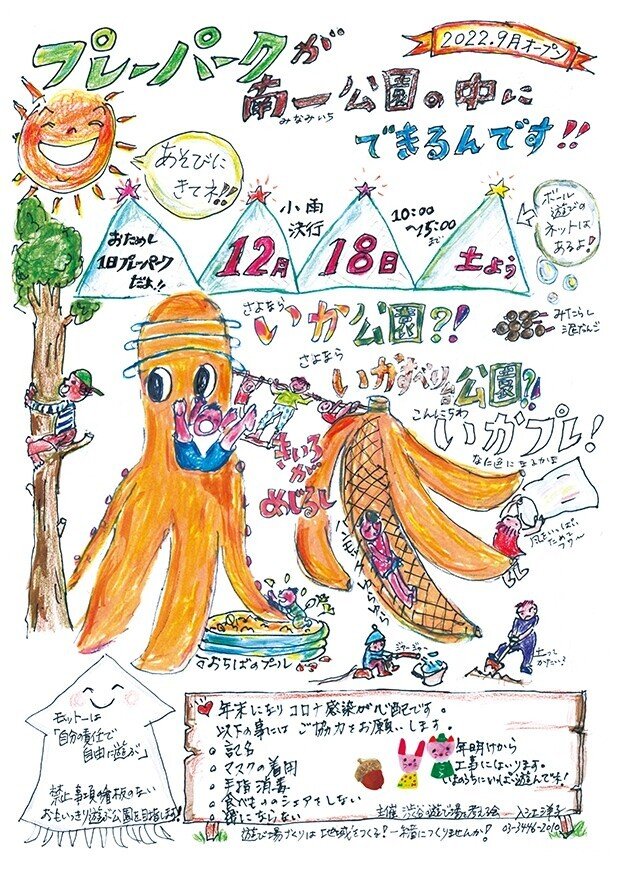 2022.9月オープン
プレーパークが
南一公園の中に
みなみいち
できるんです!!
あそびに
きてネ!!
おためし
1日プレーパーク
だよ!!
12月
小雨
決行
18日
10:00
〜15:00
まで
土よう
ボール
遊びの
ネットは
あるよ♪
さよなら
いか公園?!
みたらし
泥だんご
さよなら
いかすべり台公園?!
こんにちわ
いかプレ!
なに色になるかな
きいろ
が
めじるし
ハンモック
ゆらゆら
風をいっぱい
ためて
ジャージャー
土って
かたい!
おちばのプール
モットーは
「自分の責任で
自由に遊ぶ」
禁止事項の看板のない
おもいっきり遊ぶ公園を目指します!
年末になりコロナ感染が心配です。
以下の事にはご協力をお願いします。
○記名
○マスクの着用
○手指消毒
○食べもののシェアをしない
○密にならない
年明けから
工事にはいります。
いまのうちにいっぱい遊んでネ!
主催 渋谷の遊び場を考える会
03-3446-2010
遊び場づくりは地域をつくる!一緒につくりませんか?